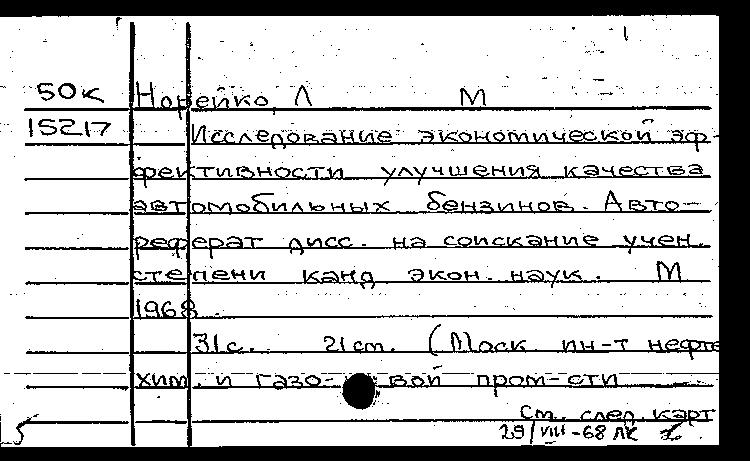 50к Норейко, Л М
15217 Исследование экономической эф-
фективности улучшения качества
автомобильных бензинов. Авто-
реферат дисс. на соискание учен.
степени канд экон. наук. М
1968.
31с. 21 см. (Моск ин-т нефте
хим. и газо- вой пром-сти
См. след. карт
29/VIII-68 ЛК